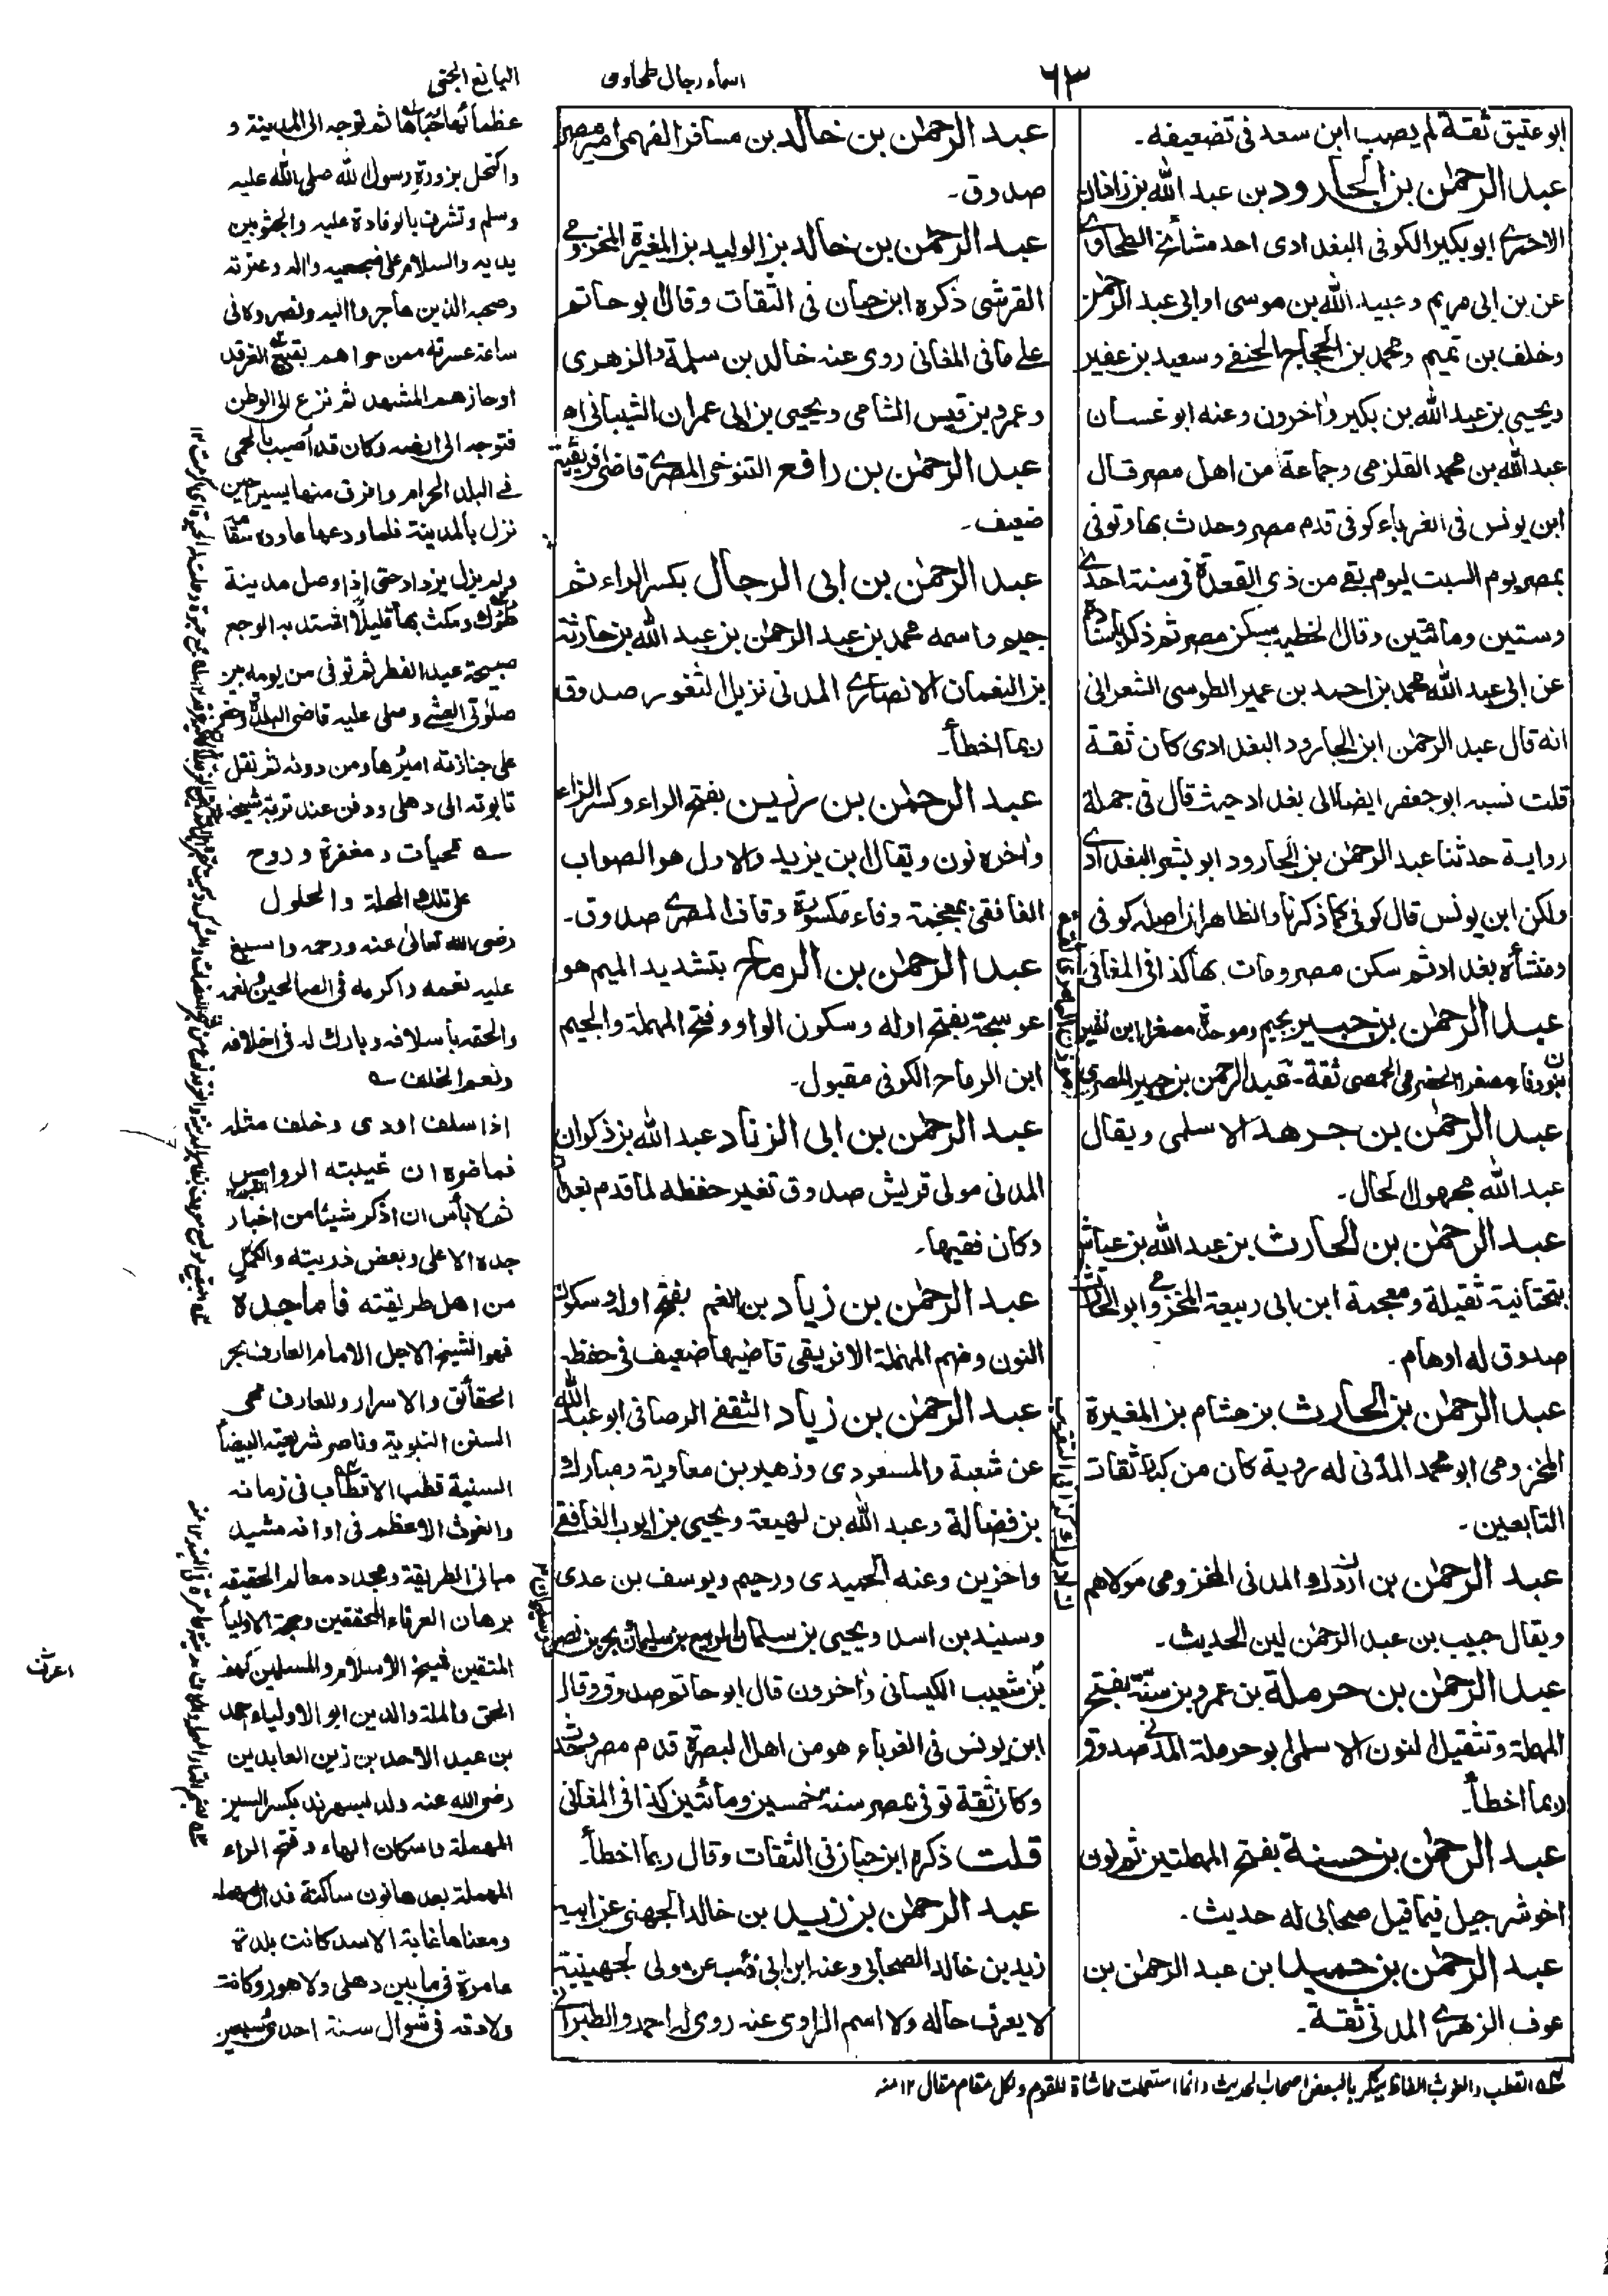 ٦٣
اسماء رجال طحاوی
اليانع الجنی
ابو عتيق ثقة لم يصب ابن سعد فی تضعيفه۔
عبد الرحمٰن بن الجارود بن عبد الله بن زاذان
الاحمری ابو بكير الكوفی البغدادی احد مشائخ الطحاوی
عن بن ابی مريم وعبيد الله بن موسی او ابی عبد الرحمن
وخلف بن تميم ومحمد بن الحجاج الحنفی وسعيد بن عفير
ويحيی بن عبد الله بن بكير واٰخرون وعنه ابو غسان
عبد الله بن محمد القلزمی وجماعة من اهل مصر قال
ابن يونس فی الغرباء كوفی قدم مصر وحدث بها وتوفی
بمصر يوم السبت ليوم بقی من ذی القعدة فی سنة احدی
وستين ومائتين وقال الخطيب سكن مصر ثم ذكر باسناده
عن ابی عبد الله محمد بن احمد بن عمير الطوسی الشعرانی
انه قال عبد الرحمٰن ابن الجارود البغدادی كان ثقة
قلت نسبه ابو جعفر ايضا الی بغداد حيث قال فی جملة
رواية حدثنا عبد الرحمٰن بن الجارود ابو بشر البغدادی
ولكن ابن يونس قال كوفی كما ذكرنا والظاهر ان اصله كوفی
ومنشأه بغداد ثم سكن مصر ومات بها كذا فی المغانی
عبد الرحمٰن بن جبير بجيم وموحدة مصغرا ابن نفير
بنون وفاء مصغرا الحضرمی الحمصی ثقة۔ عبد الرحمن بن جبير المصری
عبد الرحمٰن بن جرهد الاسلمی ويقال
عبد الله مجهول الحال۔
عبد الرحمٰن بن الحارث بن عبد الله بن عياش
بتحتانية ثقيلة ومعجمة ابن ابی ربيعة المخزومی ابو الحارث
صدوق له اوهام۔
عبد الرحمٰن بن الحارث بن هشام بن المغيرة
المخزومی ابو محمد المدنی له روية كان من كبار ثقات
التابعين۔
عبد الرحمٰن بن اردك المدنی المخزومی مولاهم
ويقال حبيب بن عبد الرحمٰن لين الحديث۔
عبد الرحمٰن بن حرملة بن عمرو بن سنة بفتح
المهملة وتثقيل النون الاسلمی ابو حرملة المدنی صدوق
ربما اخطأ۔
عبد الرحمٰن بن حسنة بفتح المهملتين ثم نون
اخو شرحبيل فيما قيل صحابی له حديث۔
عبد الرحمٰن بن حميد بن عبد الرحمٰن بن
عوف الزهری المدنی ثقة۔
عبد الرحمٰن بن خالد بن مسافر الفهمی امير مصر
صدوق۔
عبد الرحمٰن بن خالد بن الوليد بن المغيرة المخزومی
القرشی ذكره ابن حبان فی الثقات وقال ابو حاتم
علی ما فی المغانی روی عنه خالد بن سلمة والزهری
وعمرو بن قيس الشامی ويحيی بن ابی عمران الشيبانی اھ
عبد الرحمٰن بن رافع التنوخی المصری قاضی افريقية
ضعيف۔
عبد الرحمٰن بن ابی الرجال بكسر الراء ثم
جيم واسمه محمد بن عبد الرحمٰن بن عبد الله بن حارثة
بن النعمان الانصاری المدنی نزيل الثغور صدوق
ربما اخطأ۔
عبد الرحمٰن بن رزين بفتح الراء وكسر الزاء
واٰخره نون ويقال ابن يزيد والاول هو الصواب
الغافقی بمعجمة وفاء مكسورة وقاف المصری صدوق۔
عبد الرحمٰن بن الرماح بتشديد الميم هو
عوسجة بفتح اوله وسكون الواو وفتح المهملة والجيم
ابن الرماح الكوفی مقبول۔
عبد الرحمٰن بن ابی الزناد عبد الله بن ذكوان
المدنی مولی قريش صدوق تغير حفظه لما قدم بغداد
وكان فقيها۔
عبد الرحمٰن بن زياد بن انعم بفتح اوله وسكون
النون وضم المهملة الافريقی قاضيها ضعيف فی حفظه
عبد الرحمٰن بن زياد الثقفی الرصافی ابو عبد الله
عن شعبة والمسعودی وزهير بن معاوية ومبارك
بن فضالة وعبد الله بن لهيعة ويحيی بن ايوب الغافقی
واٰخرين وعنه الحميدی ورحيم ويوسف بن عدی
وسنيد بن اسد ويحيی بن سلمان والربيع بن سليمان وبحر بن نصر
بن شعيب الكيسانی واٰخرون قال ابو حاتم صدوق وقال
ابن يونس فی الغرباء هو من اهل البصرة قدم مصر وحدث
وكان ثقة توفی بمصر سنة خمسين ومائتين كذا فی المغانی
قلت ذكره ابن حبان فی الثقات وقال ربما اخطأ۔
عبد الرحمٰن بن زيد بن خالد الجهنی عن ابيه
زيد بن خالد الصحابی وعنه ابن ابی ذئب عن مولی لجهينية
لا يعرف حاله ولا اسم الراوی عنه روی له احمد والطبرانی
عظمائها ثم توجه الی المدينة و
واكتحل بزورة رسول الله صلی الله عليه
وسلم وتشرف بالوفادة عليه والجثو بين
يديه والسلام علی ضجيعيه واله وعترته
وصحبه الذين هاجروا اليه ونصروه فی
ساعة عسرته ممن حواهم بقيع الغرقد
او حازهم المشهد ثم نزع الی الوطن
فتوجه الی ارضه وكان قد اصيب بالحمی
فی البلد الحرام وافرق منها يسيرا حين
نزل بالمدينة فلما ودعها عاوده سقامه
ولم يزل يزداد حتی اذا وصل مدينة
طونك ومكث بها قليلا اشتد به الوجع
صبيحة عيد الفطر ثم توفی من يومه بين
صلوتی العشی وصلی عليه قاضی البلدة وحضر
علی جنازته اميرها ومن دونه ثم نقل
تابوته الی دهلی ودفن عند تربة شيخه
ـ تحيات ومغفرة وروح
علی تلك المحلة والحلول
رضی الله تعالیٰ عنه ورحمه واسبغ
عليه نعمه واكرمه فی الصالحين ونعمه
والحقه بأسلافه وبارك له فی اخلافه
ونعم الخلف ـ
اذا سلف اودی وخلف مثله
فما ضره ان غيبته الروامس
ثم لا بأس ان اذكر شيئا من اخبار
جده الاعلی وبعض ذريته والكمّل
من اهل طريقته فاما جده
فهو الشيخ الاجل الامام العارف بحر
الحقائق والاسرار والمعارف محی
السنن النبوية وناصر شريعته البيضاء
السنية قطب الاقطاب فی زمانه
والغوث الاعظم فی اوانه مشيد
مبانی الطريقة ومجدد معالم الحقيقه
برهان العرفاء المحققين وحجة الاولياء
المتقين شيخ الاسلام والمسلمين كهف
الحق والملة والدين ابو الاولياء احمد
بن عبد الاحد بن زين العابدين
رضی الله عنه ولد بسهرند بكسر السين
المهملة واسكان الهاء وفتح الراء
المهملة بعدها نون ساكنة فدال مهملة
ومعناها غابة الاسد كانت بلدة
عامرة فی ما بين دهلی ولاهور وكانت
ولادته فی شوال سنة احدی وسبعين
القطب والغوث الفاظ ينكر بالبعض اصحاب الحديث وانما استعملت مماشاة للقوم ولكل مقام مقال ۱۲ منه
اعرف